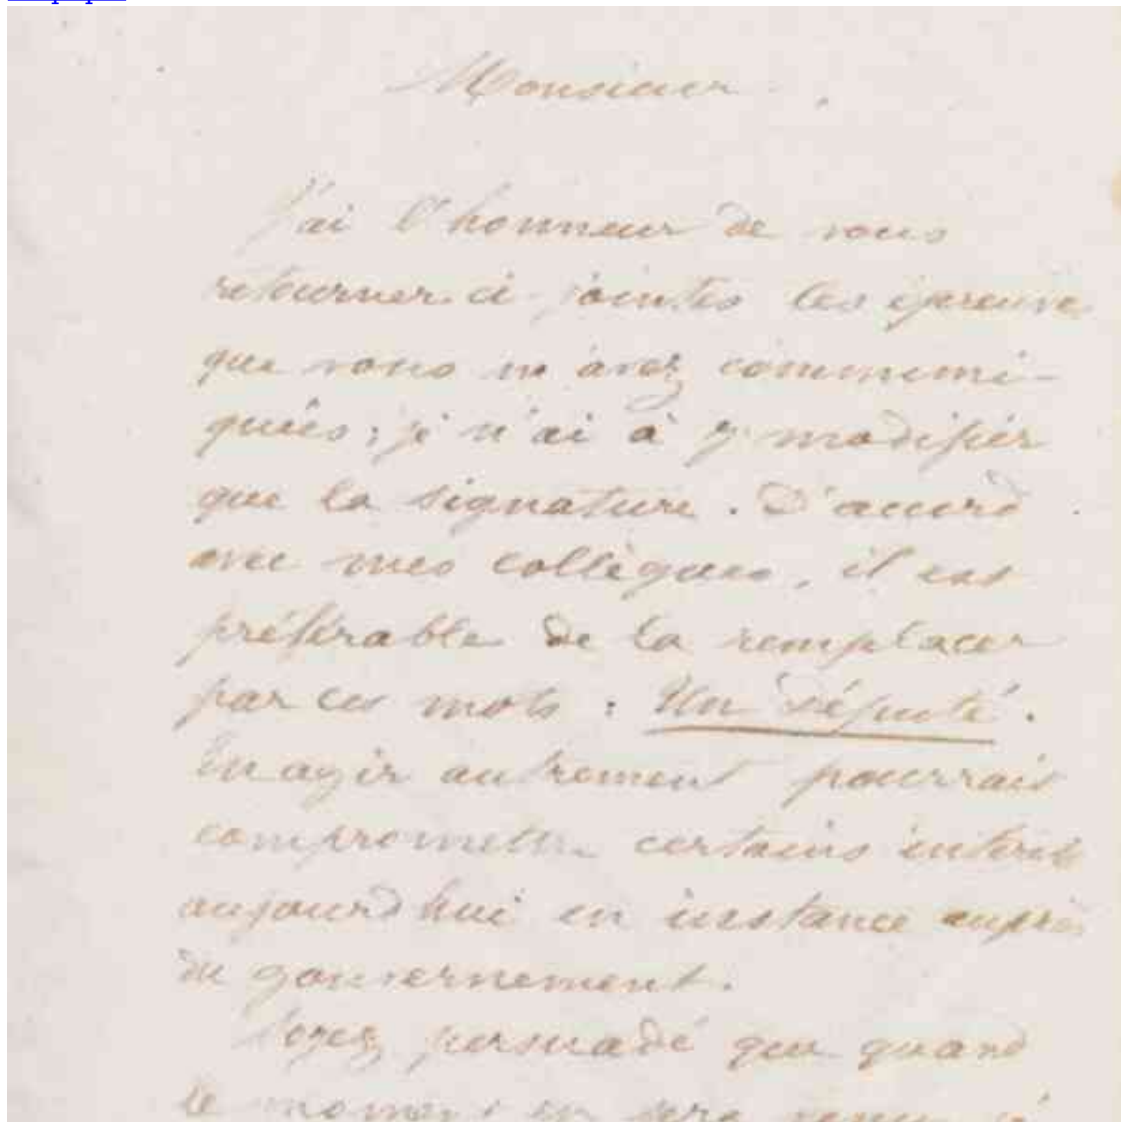 Monsieur
J'ai l'honneur de vous
retourner ci-jointes les épreuves
que vous m'avez communi-
quées ; je n'ai à y modifier
que la signature. D'accord
avec mes collègues, il est
préférable de la remplacer
par ces mots : Un député.
En agir autrement pourrait
compromettre certains intérêts
aujourd'hui en instance auprès
du gouvernement.
Soyez persuadé que quand
le moment en sera venu